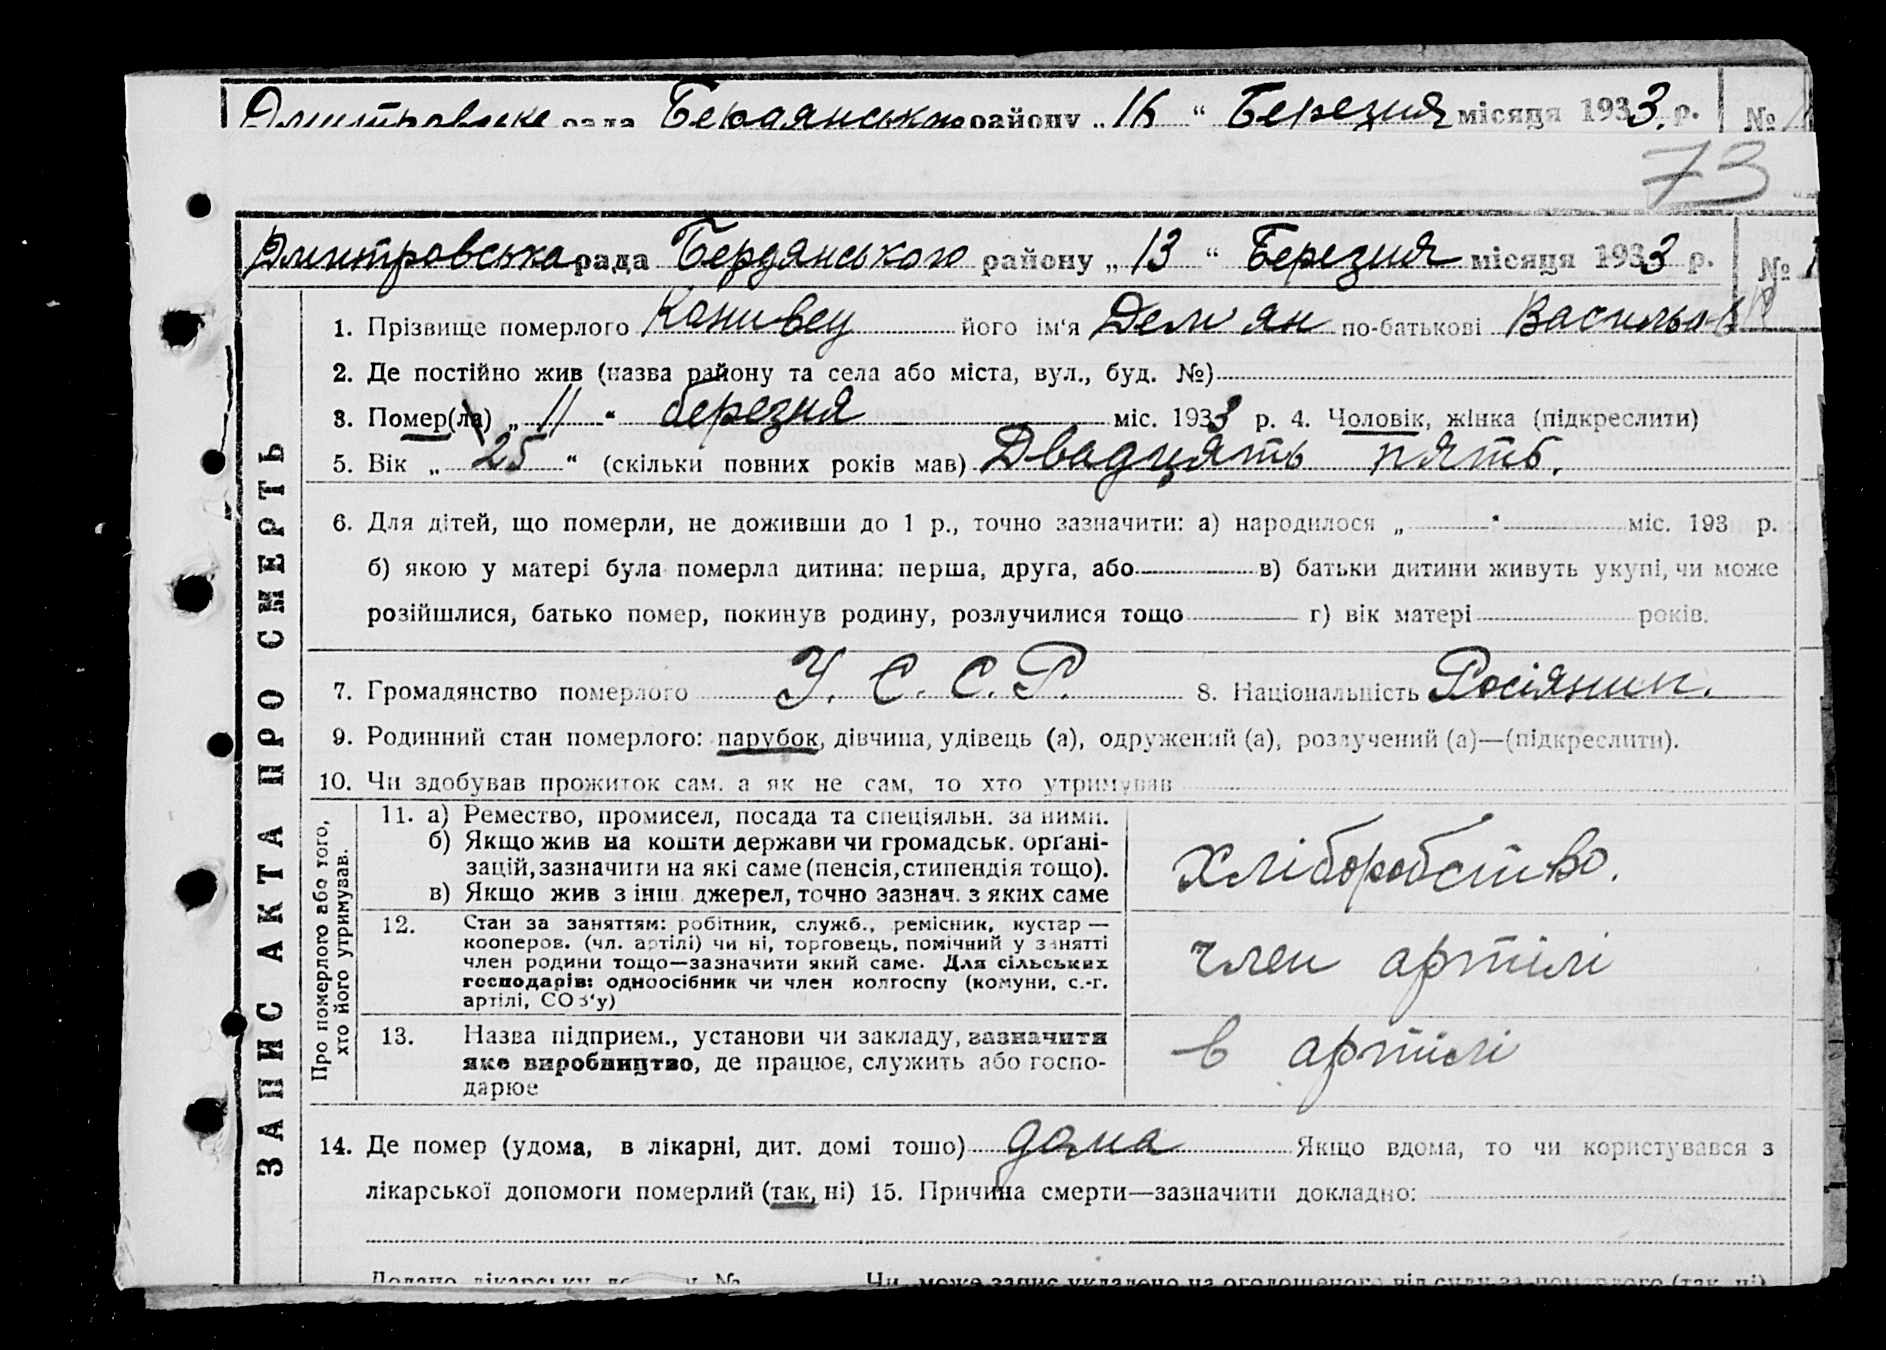 Дмитровське рада Бердянського району „ 16 “ Березня місяця 1933. р. №
73
Дмитровська рада Бердянського району „ 13 “ Березня місяця 1933 р. №
1. Прізвище померлого його ім'я Дем'ян по-батькові
2. Де постійно жив (назва району та села або міста, вул., буд. №)
3. Помер(ла) „ 11 “ березня міс. 1933 р. 4. Чоловік, жінка (підкреслити)
5. Вік „ 25 “ (скільки повних років мав) Двадцять пять.
6. Для дітей, що померли, не доживши до 1 р., точно зазначити: а) народилося „ “ міс. 193 р.
б) якою у матері була померла дитина: перша, друга, або в) батьки дитини живуть укупі, чи може
розійшлися, батько помер, покинув родину, розлучилися тощо г) вік матері років.
7. Громадянство померлого У. С. С. Р. 8. Національність Росіянин.
9. Родинний стан померлого: парубок, дівчина, удівець (а), одружений (а), розлучений (а)—(підкреслити).
10. Чи здобував прожиток сам, а як не сам, то хто утримував
ЗАПИС АКТА ПРО СМЕРТЬ
Про померлого або того,
хто його утримував.
11. а) Ремество, промисел, посада та спеціяльн. за ними.
б) Якщо жив на кошти держави чи громадськ. орґані-
зацій, зазначити на які саме (пенсія, стипендія тощо).
в) Якщо жив з інш. джерел, точно зазнач. з яких саме
Хліборобство.
12. Стан за заняттям: робітник, служб., ремісник, кустар —
кооперов. (чл. артілі) чи ні, торговець, помічний у занятті
член родини тощо—зазначити який саме. Для сільських
господарів: одноосібник чи член колгоспу (комуни, с.-г.
артілі, СОЗ'у)
член артілі
13. Назва підприєм., установи чи закладу, зазначити
яке виробництво, де працює, служить або госпо-
дарює
в артілі
14. Де помер (удома, в лікарні, дит. домі тощо) дома Якщо вдома, то чи користувався з
лікарської допомоги померлий (так, ні) 15. Причина смерти—зазначити докладно: